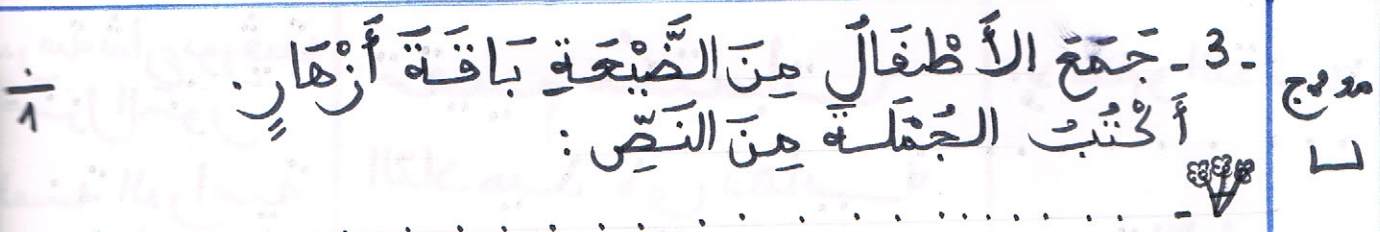 -3- جَمَعَ الأَطْفَالُ مِنَ الضَّيْعَةِ بَاقَةَ أَزْهَارٍ.
أَكْتُبُ الجُمْلَةَ مِنَ النَصِّ :
- . . . . . . . . . . . . . . . . . . . .
مع
1